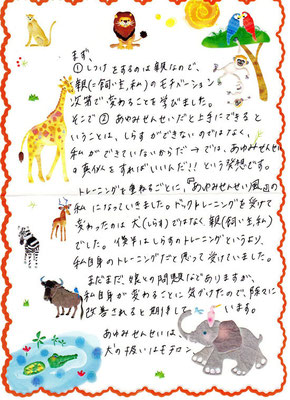 まず、
①しつけをするのは親なので、
親(=飼い主,私)のモチベーション
次第で変わることを学びました。
そこで②あゆみせんせいだと上手にできると
いうことは、しらすができないのではなく、
私ができていないからだ→では、あゆみせんせい
の真似をすればいいんだ!!という発想です。
トレーニングを重ねるごとに、「あゆみせんせい風」の
私になっていきました。ドックトレーニングを受けて
変わったのは犬(しらす)ではなく親(飼い主,私)
でした。後半はしらすのトレーニングというより、
私自身のトレーニングだと思って受けていました。
まだまだ、娘との問題などありますが、
私自身が変わることに気づけたので、徐々に
改善されると期待して います。
あゆみせんせいは、
犬の扱いはモチロン